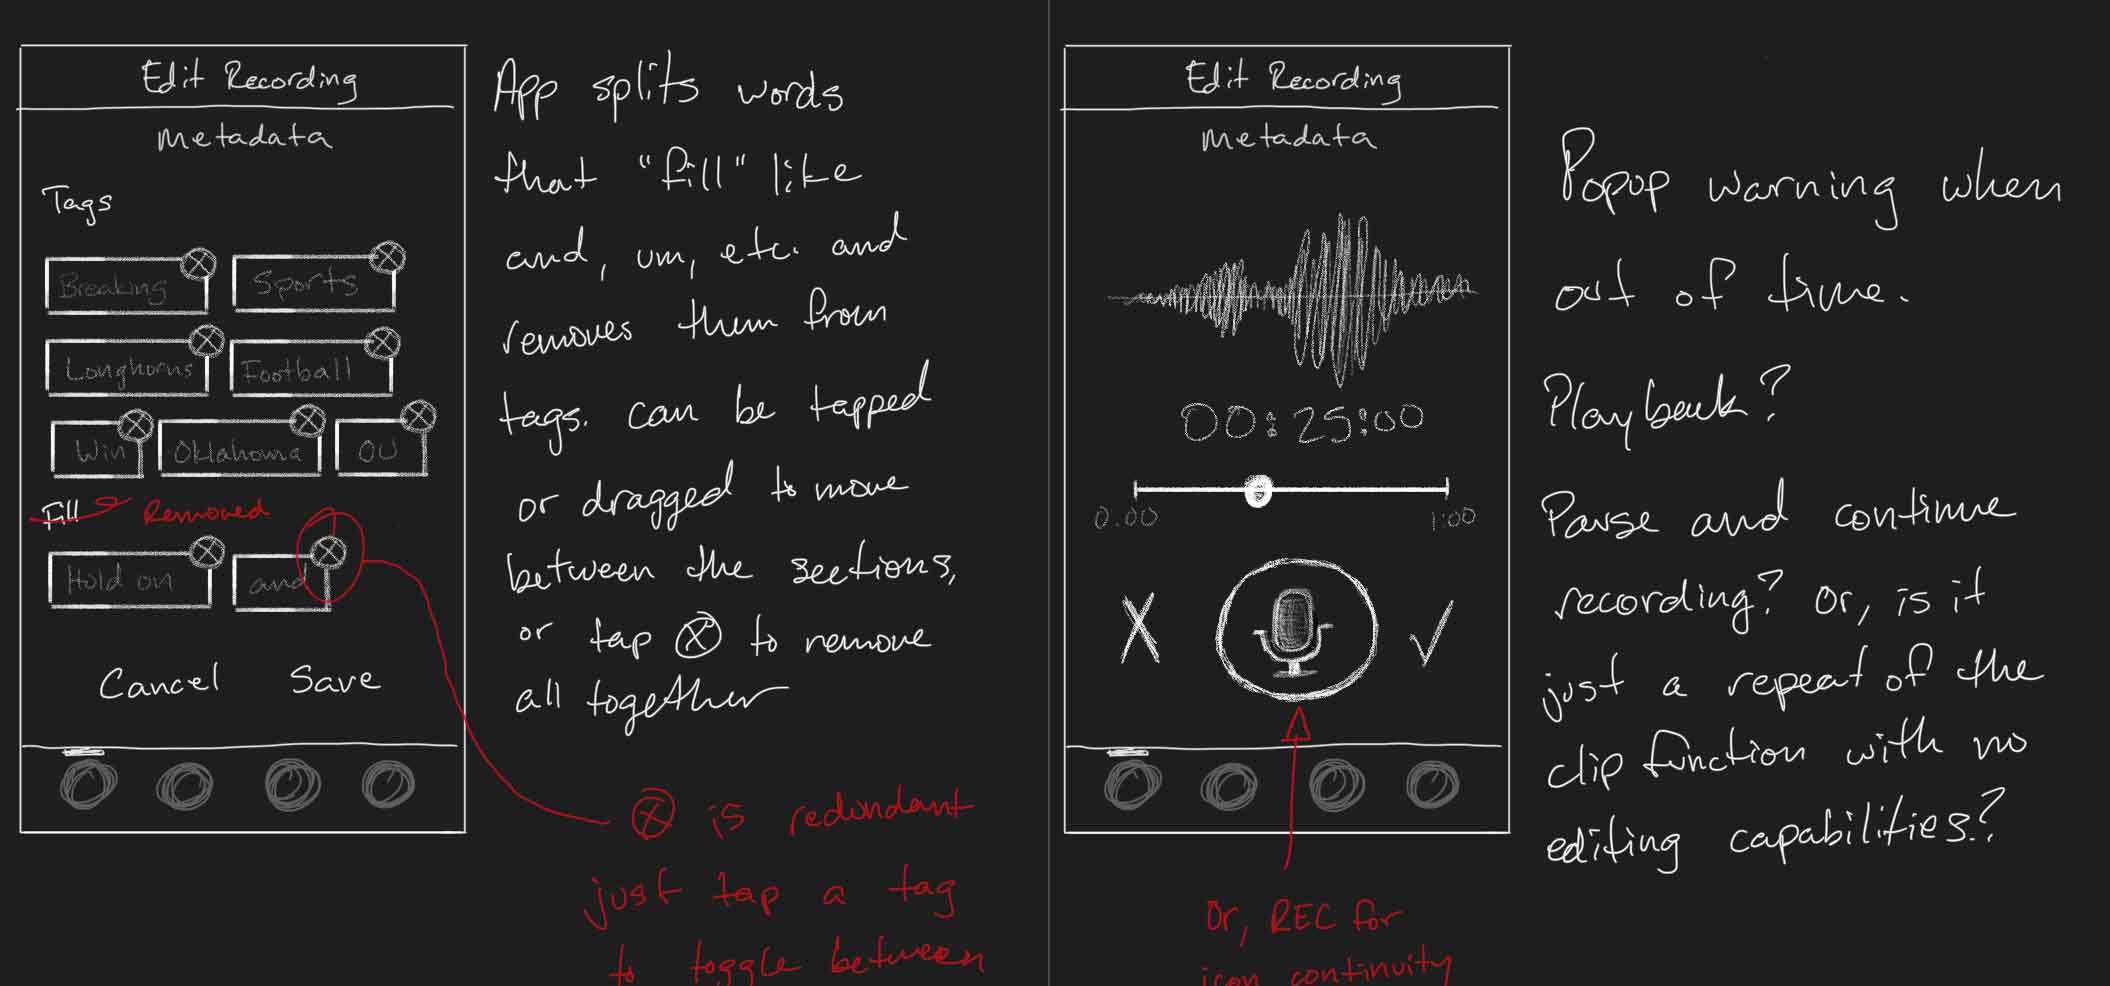 Edit Recording
Metadata
Tags
Breaking
Sports
Longhorns
Football
Win
Oklahoma
OU
Fill
Removed
Hold on
and
Cancel
Save
App splits words
that "fill" like
and, um, etc. and
removes them from
tags. can be tapped
or dragged to move
between the sections,
or tap ⓧ to remove
all together
ⓧ is redundant
just tap a tag
to toggle between
Edit Recording
Metadata
00:25:00
0.00
1:00
X
✓
Or, REC for
icon continuity
Popup warning when
out of time.
Playback?
Pause and continue
recording? Or, is it
just a repeat of the
clip function with no
editing capabilities?